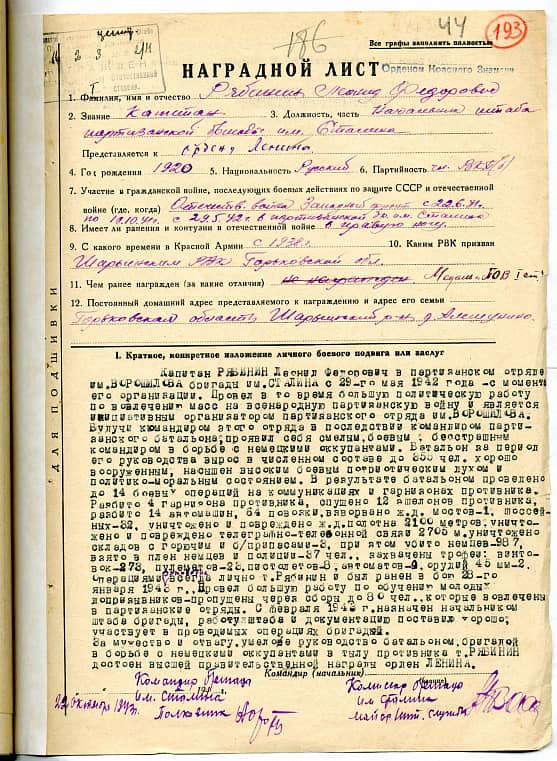 186
44
193
Все графы заполнять полностью
НАГРАДНОЙ ЛИСТ
Орденом Красного Знамени
1. Фамилия, имя и отчество Рябинин Леонид Федорович
2. Звание Капитан 3. Должность, часть Начальник штаба
партизанской бригады им. Сталина
Представляется к ордену Ленина
4. Год рождения 1920 5. Национальность Русский 6. Партийность чл. ВКП(б)
7. Участие в гражданской войне, последующих боевых действиях по защите СССР и отечественной
войне (где, когда) Отечеств. война Западный фронт с 22.6.41г.
по 10.10.41г. с 29.5.42г. в партизанской бр. им. Сталина
8. Имеет ли ранения и контузии в отечественной войне в правую ногу.
9. С какого времени в Красной Армии с 1938г. 10. Каким РВК призван
Шарьинским РВК Горьковской обл.
11. Чем ранее награжден (за какие отличия) не награжден Медаль "ПОВ I ст"
12. Постоянный домашний адрес представляемого к награждению и адрес его семьи
Горьковская область, Шарьинский р-н д.
I. Краткое, конкретное изложение личного боевого подвига или заслуг
Капитан РЯБИНИН Леонид Федорович в партизанском отряде
им.ВОРОШИЛОВА бригады им.СТАЛИНА с 29-го мая 1942 года -с момента
его организации. Провел в то время большую политическую работу
по вовлечению масс на всенародную партизанскую войну и является
инициативным организатором партизанского отряда им.ВОРОШИЛОВА.
Будучи командиром этого отряда в последствии командиром парти-
занского батальона,проявил себя смелым,боевым, бесстрашным
командиром в борьбе с немецкими оккупантами. Батальон за период
его руководства вырос в численном составе до чел. хорошо
вооруженным, насыщен высоким боевым патриотическим духом и
политико-моральным состоянием. В результате батальоном проведено
до 14 боевых операций на коммуникациях и гарнизонах противника.
Разбито 4 гарнизона противника, спущено 12 эшелонов противника,
разбито 14 автомашин, 64 повозки,взорвано ж.д. мостов-1, шоссей-
ных-32, уничтожено и повреждено ж.д.полотна 2100 метров,уничто-
жено и повреждено телеграфно-телефонной связи 2705 мм,уничтожено
складов с горючим и б/припасами-3, при этом убито немцев-987,
взято в плен немцев и полиции-37 чел. захвачены трофеи: винто-
вок-273, пулеметов-23,пистолетов-8,автоматов-9,орудий 45 мм-2.
Операциями всегда лично т.Рябинин и был ранен в бою 28-го
января 1943 г. Провел большую работу по обучению молодых
допризывников-пропущены через сборы до 80 чел.,которые вовлечены
в партизанские отряды. С февраля 1943 г.назначен начальником
штаба бригады, работу штаба и документацию поставил хорошо,
участвует в проводимых операциях бригадой.
За мужество и отвагу,умелое руководство батальоном,бригадой
в борьбе с немецкими оккупантами в тылу противника т.РЯБИНИН
достоен высшей правительственной награды орден ЛЕНИНА.
Командир (начальник)
(звание)
Командир бригады
им. Сталина
Полковник
22 октября 1943г.
Комиссар бригады
им. Сталина
майор инт. службы
ДЛЯ ПОДШИВКИ